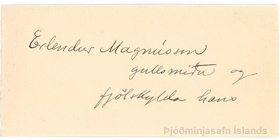 Erlendur Magnússon
gullsmiður og
fjölskylda hans
Þjóðminjasafn Íslands